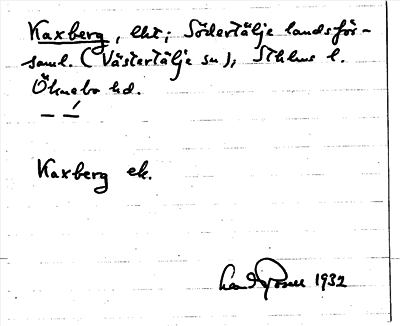 Kaxberg, lht; Södertälje landsför-
saml. (Västertälje sn), Sthlms l.
Öknebo hd.
Kaxberg ek.
1932